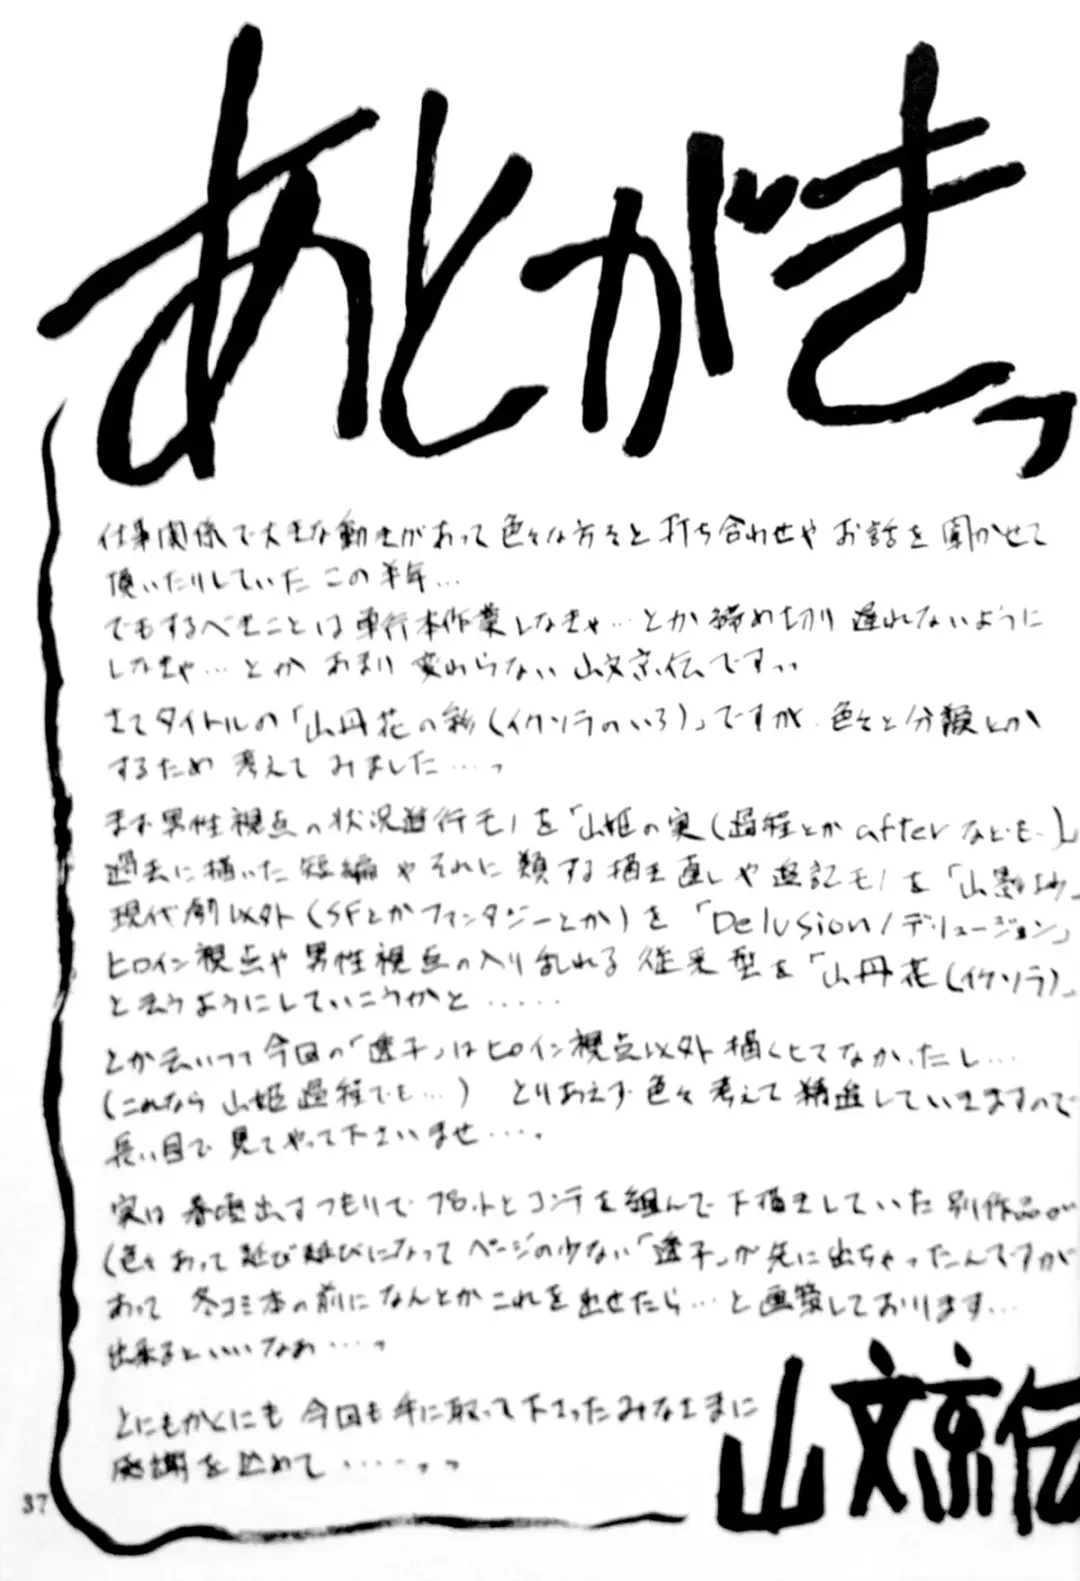 あとがきっ
仕事関係で大きな動きがあって色々な方々と打ち合わせやお話を聞かせて
頂いたりしていたこの半年…
でもするべきことは単行本作業しなきゃ…とか締め切り遅れないように
しなきゃ…とかあまり変わらない山文京伝ですっ
さてタイトルの「山丹花の彩(イケソラのいろ)」ですが、色々と分類とか
するため考えてみました……っ
まず男性視点の状況進行モノを「山姫の実(過程とかafterなども)」
過去に描いた短編やそれに類する描き直しや追記モノを「山
現代劇以外(SFとかファンタジーとか)を「Delusion/デリュージョン」
ヒロイン視点や男性視点の入り乱れる従来型を「山丹花(イケソラ)」
と云うようにしていこうかと……
とか云いつつ今回の「透子」はヒロイン視点以外描くヒマなかったし…
(これなら山姫過程でも…) とりあえず色々考えて精進していきますので
長い目で見てやって下さいませ……。
実は春に出すつもりでプロットとコンテを組んで下描きしていた別作品が
(色々あって延び延びになってページの少ない「透子」が先に出ちゃったんですが
あって 冬コミ本の前になんとかこれを出せたら…と画策しております…
出来るといいなあ……っ
とにもかくにも今回も手に取って下さったみなさまに
感謝を込めて……っっ
山文京伝
37